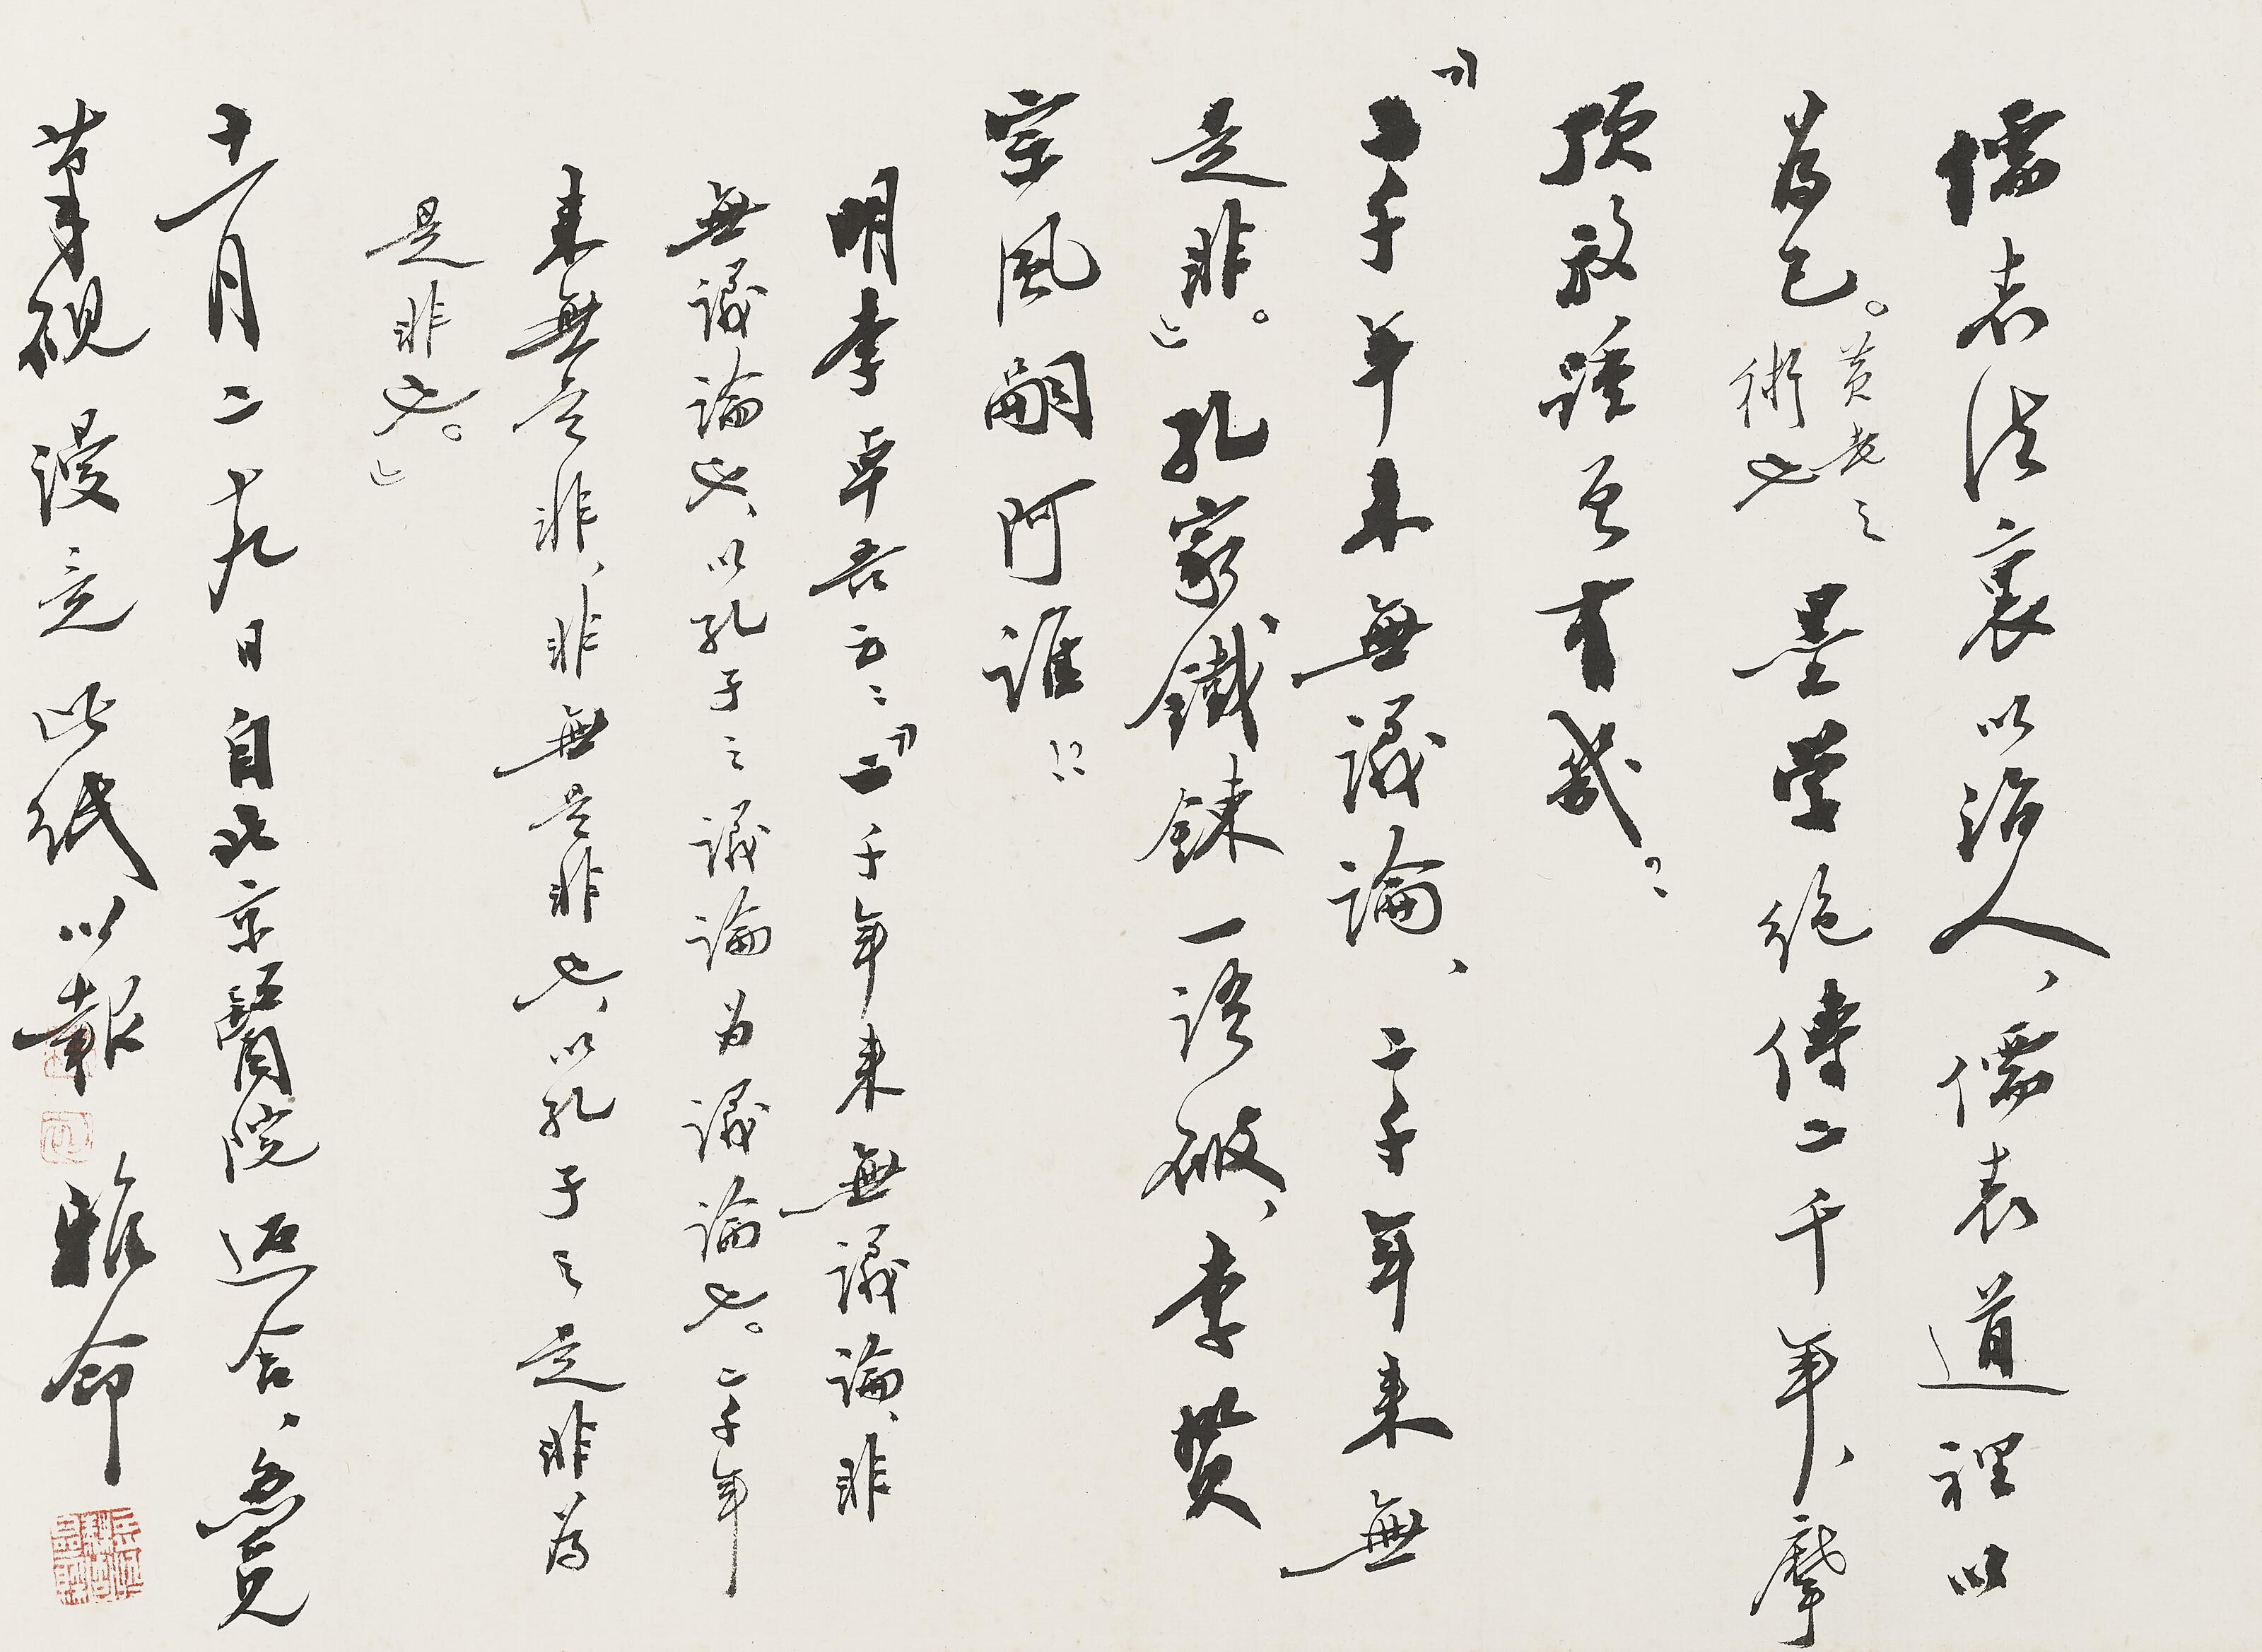 儒表法裏以治人、儒表道裡以
為己。黃老之術也 墨學絕傳二千年、摩
頂放踵豈有哉？
「二千年来無議論、二千年来無
是非。」孔家鐵鍊一語破、李贄
宗風嗣阿誰？
明李卓吾云：「二千年来無議論、非
無議論也、以孔子之議論为議論也。二千年
来無是非、非無是非也、以孔子之是非為
是非也。」
十一月二十九日自北京醫院返舍、急覓
筆硯漫竟此紙以報
雅命